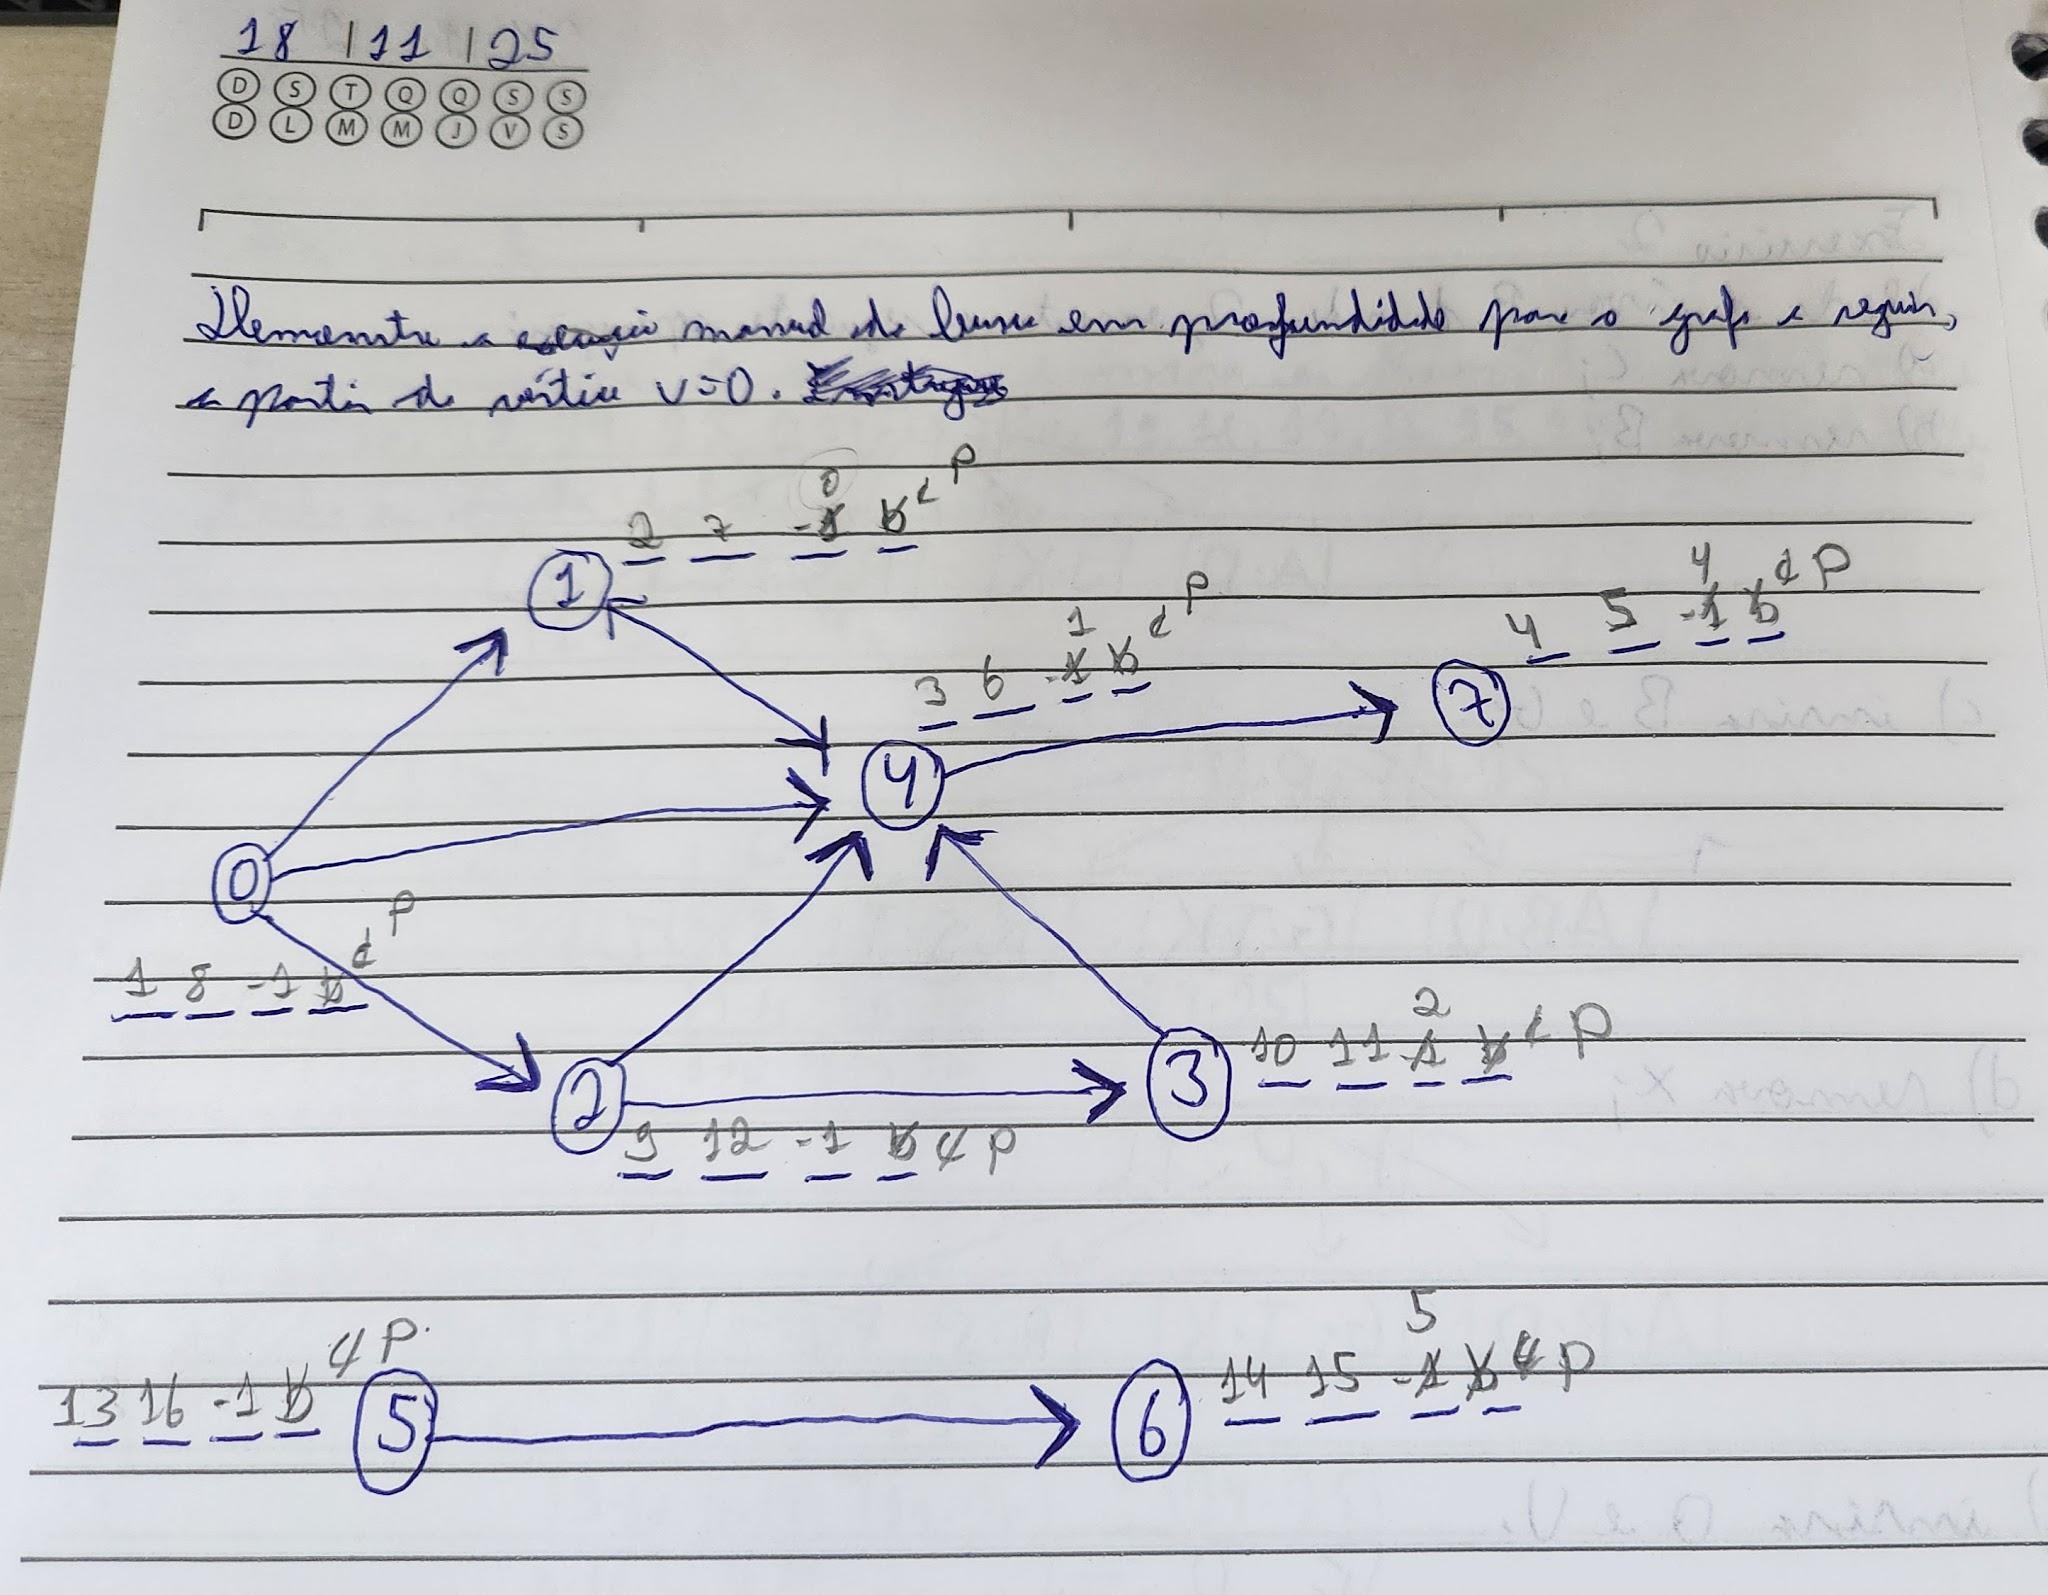 18 | 11 | 25
D S T Q Q S S
D L M M J V S
Demonstre a execução manual da busca em profundidade para o grafo a seguir,
a partir do vértice v=0.
2 7 -1 0 b c P
1
4 5 -1 4 b c P
3 6 -1 1 b c P
7
4
0
1 8 -1 b c P
2
9 12 -1 b c P
3
10 11 -1 2 b c P
13 16 -1 b c P
5
6
14 15 -1 5 b c P